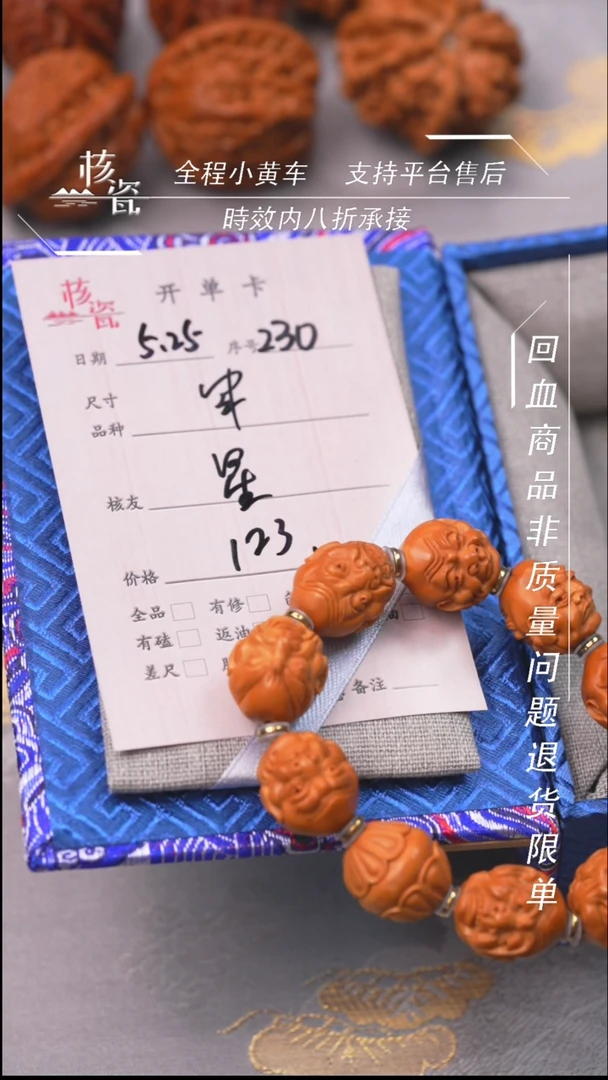 核瓷
全程小黄车 支持平台售后
時效内八折承接
回血商品非质量问题退货限单
核瓷
开单卡
日期 5.25 序号 230
尺寸
品种
核友 星
价格 123
全品 有修
有磕 返油
差尺
备注